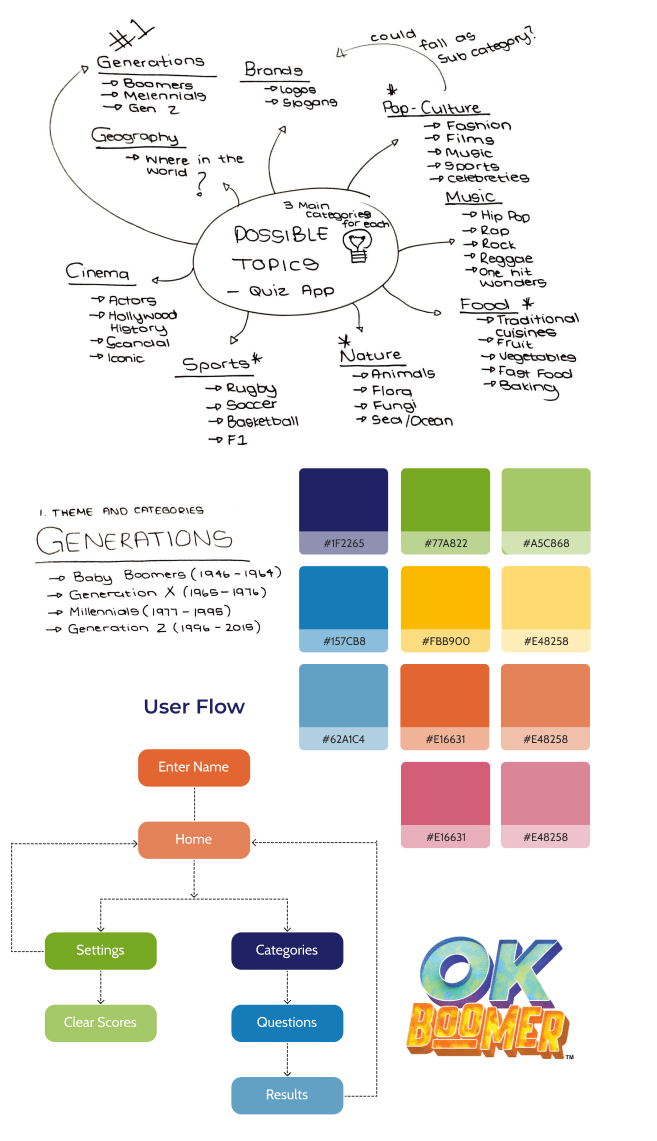 #1
could fall as
sub category?
Generations
→ Boomers
→ Melennials
→ Gen Z
Brands
→ Logos
→ Slogans
* Pop-Culture
→ Fashion
→ Films
→ Music
→ Sports
→ celebreties
Geography
→ Where in the
world ?
Music
→ Hip Pop
→ Rap
→ Rock
→ Reggae
→ One hit
wonders
3 Main
categories
for each
POSSIBLE
TOPICS
– Quiz App
Cinema
→ Actors
→ Hollywood
History
→ Scandal
→ Iconic
Food *
→ Traditional
cuisines
→ Fruit
→ Vegetables
→ Fast Food
→ Baking
Sports *
→ Rugby
→ Soccer
→ Basketball
→ F1
* Nature
→ Animals
→ Flora
→ Fungi
→ Sea/Ocean
1. THEME AND CATEGORIES
GENERATIONS
→ Baby Boomers (1946 – 1964)
→ Generation X (1965 – 1976)
→ Millennials (1977 – 1995)
→ Generation Z (1996 – 2015)
#1F2265
#77A822
#A5C868
#157CB8
#FBB900
#E48258
#62A1C4
#E16631
#E48258
#E16631
#E48258
User Flow
Enter Name
Home
Settings
Categories
Clear Scores
Questions
Results
OK
BOOMER
TM